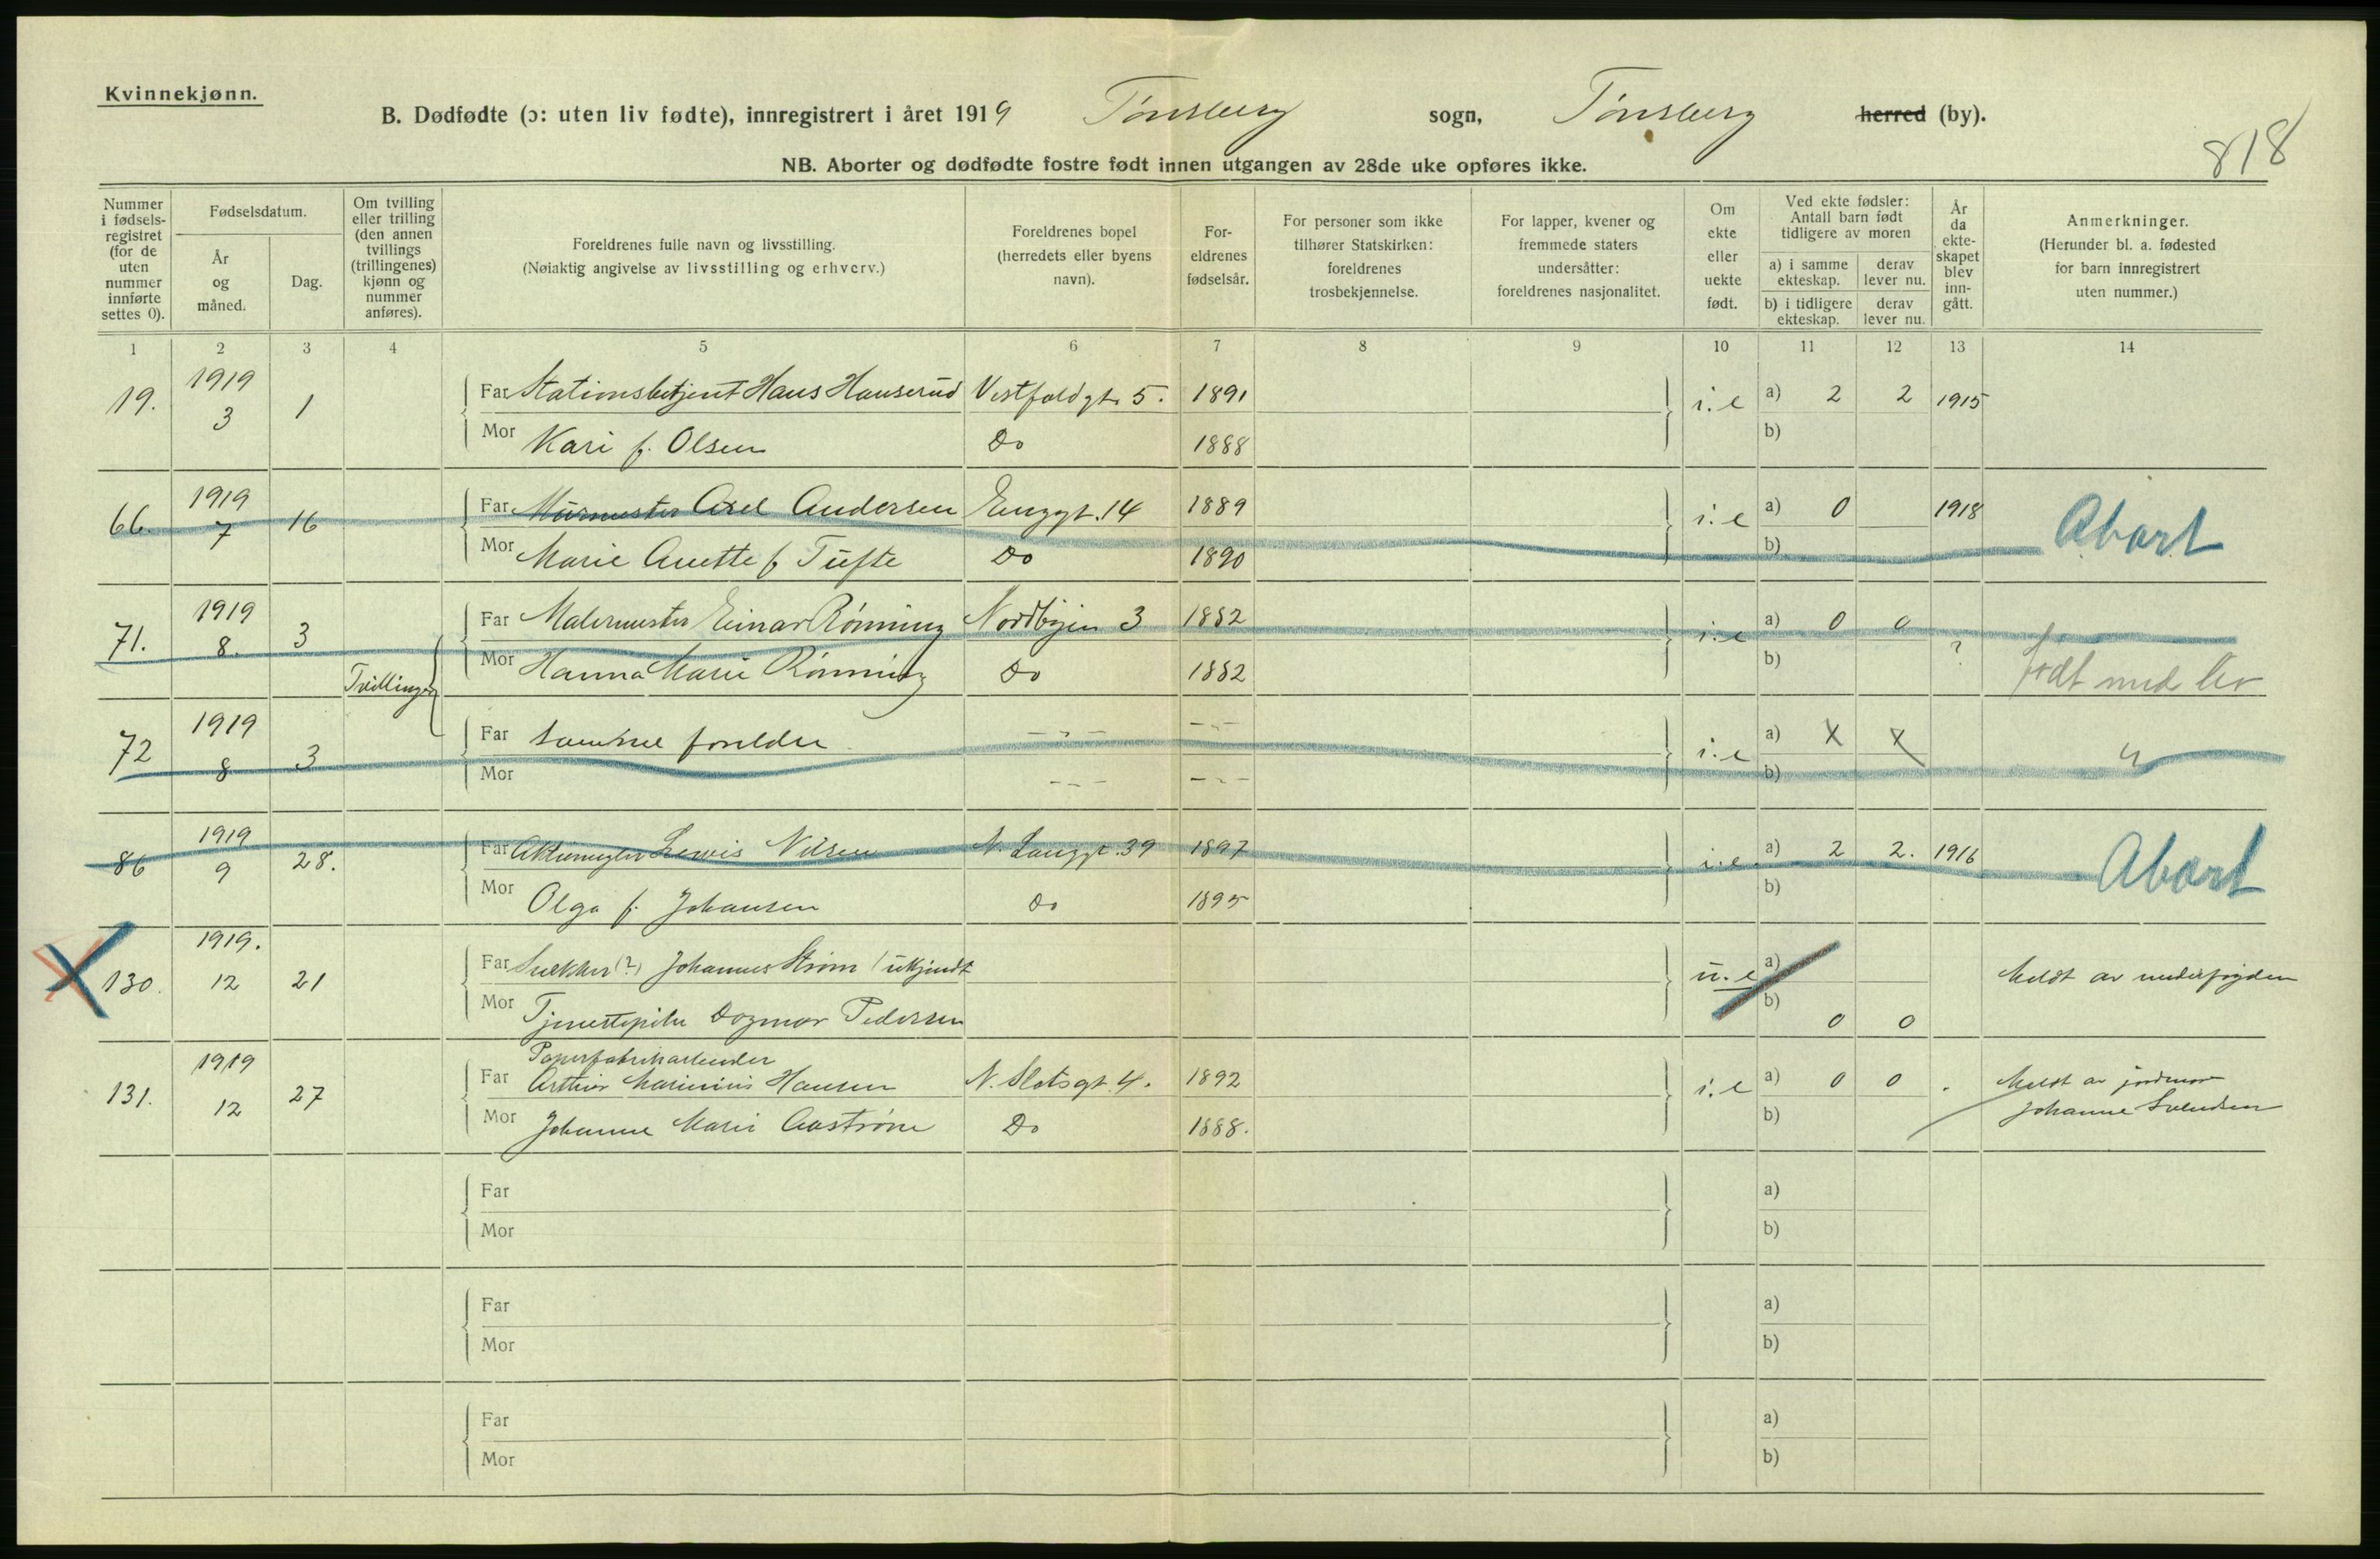 Kvinnekjønn.
B. Dødfødte (ɔ: uten liv fødte), innregistrert i året 1919 Tønsberg sogn, Tønsberg herred (by).
818
NB. Aborter og dødfødte fostre født innen utgangen av 28de uke opføres ikke.
Nummer i fødsels-registret (for de uten nummer innførte settes 0).
Fødselsdatum.
År og måned.
Dag.
Om tvilling eller trilling (den annen tvillings (trillingenes) kjønn og nummer anføres).
Foreldrenes fulle navn og livsstilling.
(Nøiaktig angivelse av livsstilling og erhverv.)
Foreldrenes bopel (herredets eller byens navn).
For-eldrenes fødselsår.
For personer som ikke tilhører Statskirken: foreldrenes trosbekjennelse.
For lapper, kvener og fremmede staters undersåtter: foreldrenes nasjonalitet.
Om ekte eller uekte født.
Ved ekte fødsler: Antall barn født tidligere av moren
a) i samme ekteskap.
derav lever nu.
b) i tidligere ekteskap.
derav lever nu.
År da ekte-skapet blev inn-gått.
Anmerkninger.
(Herunder bl. a. fødested for barn innregistrert uten nummer.)
1 2 3 4 5 6 7 8 9 10 11 12 13 14
19. 1919 3 1 Far Stationsbetjent Hans Hauserud Vestfoldgt. 5. 1891 i.e a) 2 2 1915
Mor Kari f. Olsen Do 1888 b)
66. 1919 7 16 Far Murmester Axel Andersen Enggt. 14 1889 i.e a) 0 1918 Abort
Mor Marie Anette f. Tufte Do 1890 b)
71. 1919 8. 3 Far Malermester Einar Rønning Nordbyen 3 1882 i.e a) 0 0 ? født med liv
Tvillinger Mor Hanna Marie Rønning Do 1882 b)
72 1919 8 3 Far Samme forelder - " - - " - i.e a) x x "
Mor - - - - - - b)
86 1919 9 28. Far Lewis Nilsen N. Langgt. 39 1897 i.e a) 2 2. 1916 Abort
Mor Olga f. Johansen do 1895 b)
130. 1919. 12 21 Far (?) Johannes Strøm ukjendt u.e a) Meldt av
Mor Tjenestepike Dagmar Pedersen b) 0 0
Papirfabrikarbeider
131. 1919 12 27 Far Arthur Marinius Hansen N. Slotsgt. 4. 1892 i.e a) 0 0 . Meldt av jordmor
Mor Johanne Marie Aastrøm Do 1888. b) Johanne Svendsen
Far a)
Mor b)
Far a)
Mor b)
Far a)
Mor b)